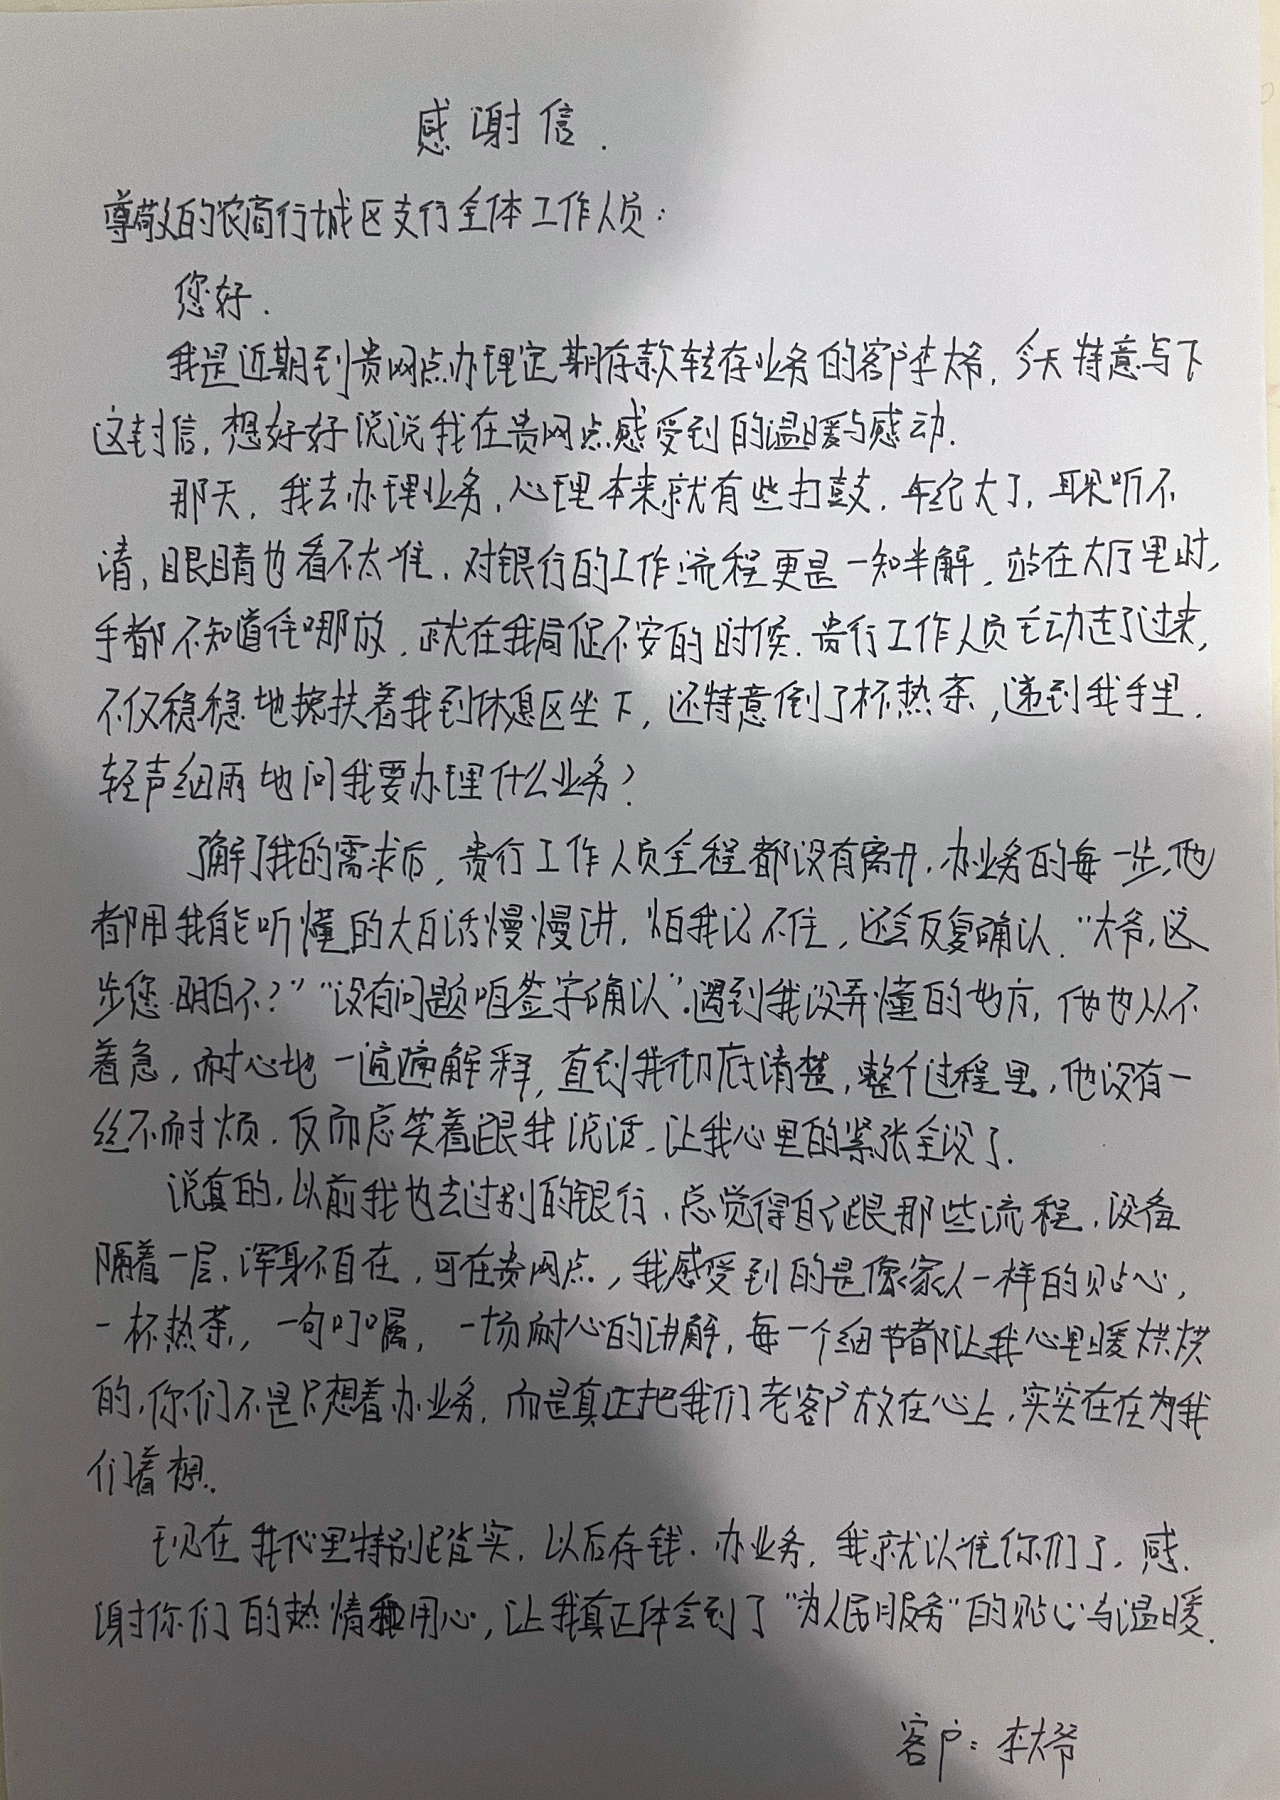 感谢信.
尊敬的农商行城区支行全体工作人员:
您好.
我是近期到贵网点办理定期存款转存业务的客户李大爷, 今天特意写下
这封信, 想好好说说我在贵网点感受到的温暖与感动.
那天, 我去办理业务, 心理本来就有些打鼓, 年纪大了, 耳朵听不
清, 眼睛也看不太准, 对银行的工作流程更是一知半解, 站在大厅里时,
手都不知道往哪放, 就在我局促不安的时候, 贵行工作人员主动走了过来,
不仅稳稳地搀扶着我到休息区坐下, 还特意倒了杯热茶, 递到我手里,
轻声细雨地问我要办理什么业务?
了解了我的需求后, 贵行工作人员全程都没有离开, 办业务的每一步, 他
都用我能听懂的大白话慢慢讲, 怕我记不住, 还会反复确认, “大爷, 这
步您明白不?” “没有问题咱签字确认”. 遇到我没弄懂的地方, 他也从不
着急, 耐心地一遍遍解释, 直到我彻底清楚, 整个过程里, 他没有一
丝不耐烦, 反而总笑着跟我说话, 让我心里的紧张全没了.
说真的, 以前我也去过别的银行, 总觉得自己跟那些流程, 设备
隔着一层, 浑身不自在, 可在贵网点, 我感受到的是像家人一样的贴心,
一杯热茶, 一句叮嘱, 一场耐心的讲解, 每一个细节都让我心里暖烘烘
的, 你们不是只想着办业务, 而是真正把我们老客户放在心上, 实实在在为我
们着想.
现在我心里特别踏实, 以后存钱. 办业务, 我就认准你们了, 感
谢你们的热情和用心, 让我真正体会到了“为人民服务”的贴心与温暖.
客户: 李大爷